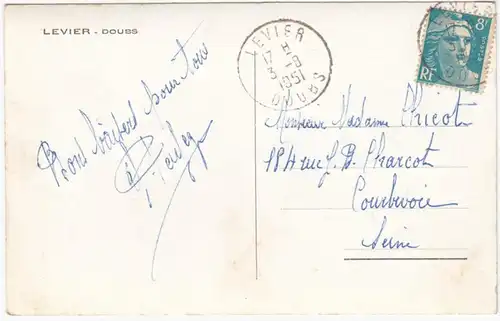 LEVIER - DOUBS
LEVIER
17 H
3 - 8
1951
DOUBS
8F
RF
Bons baisers pour tous
Monsieur Madame Chicot
18 A rue J. B. Charcot
Courbevoie
Seine